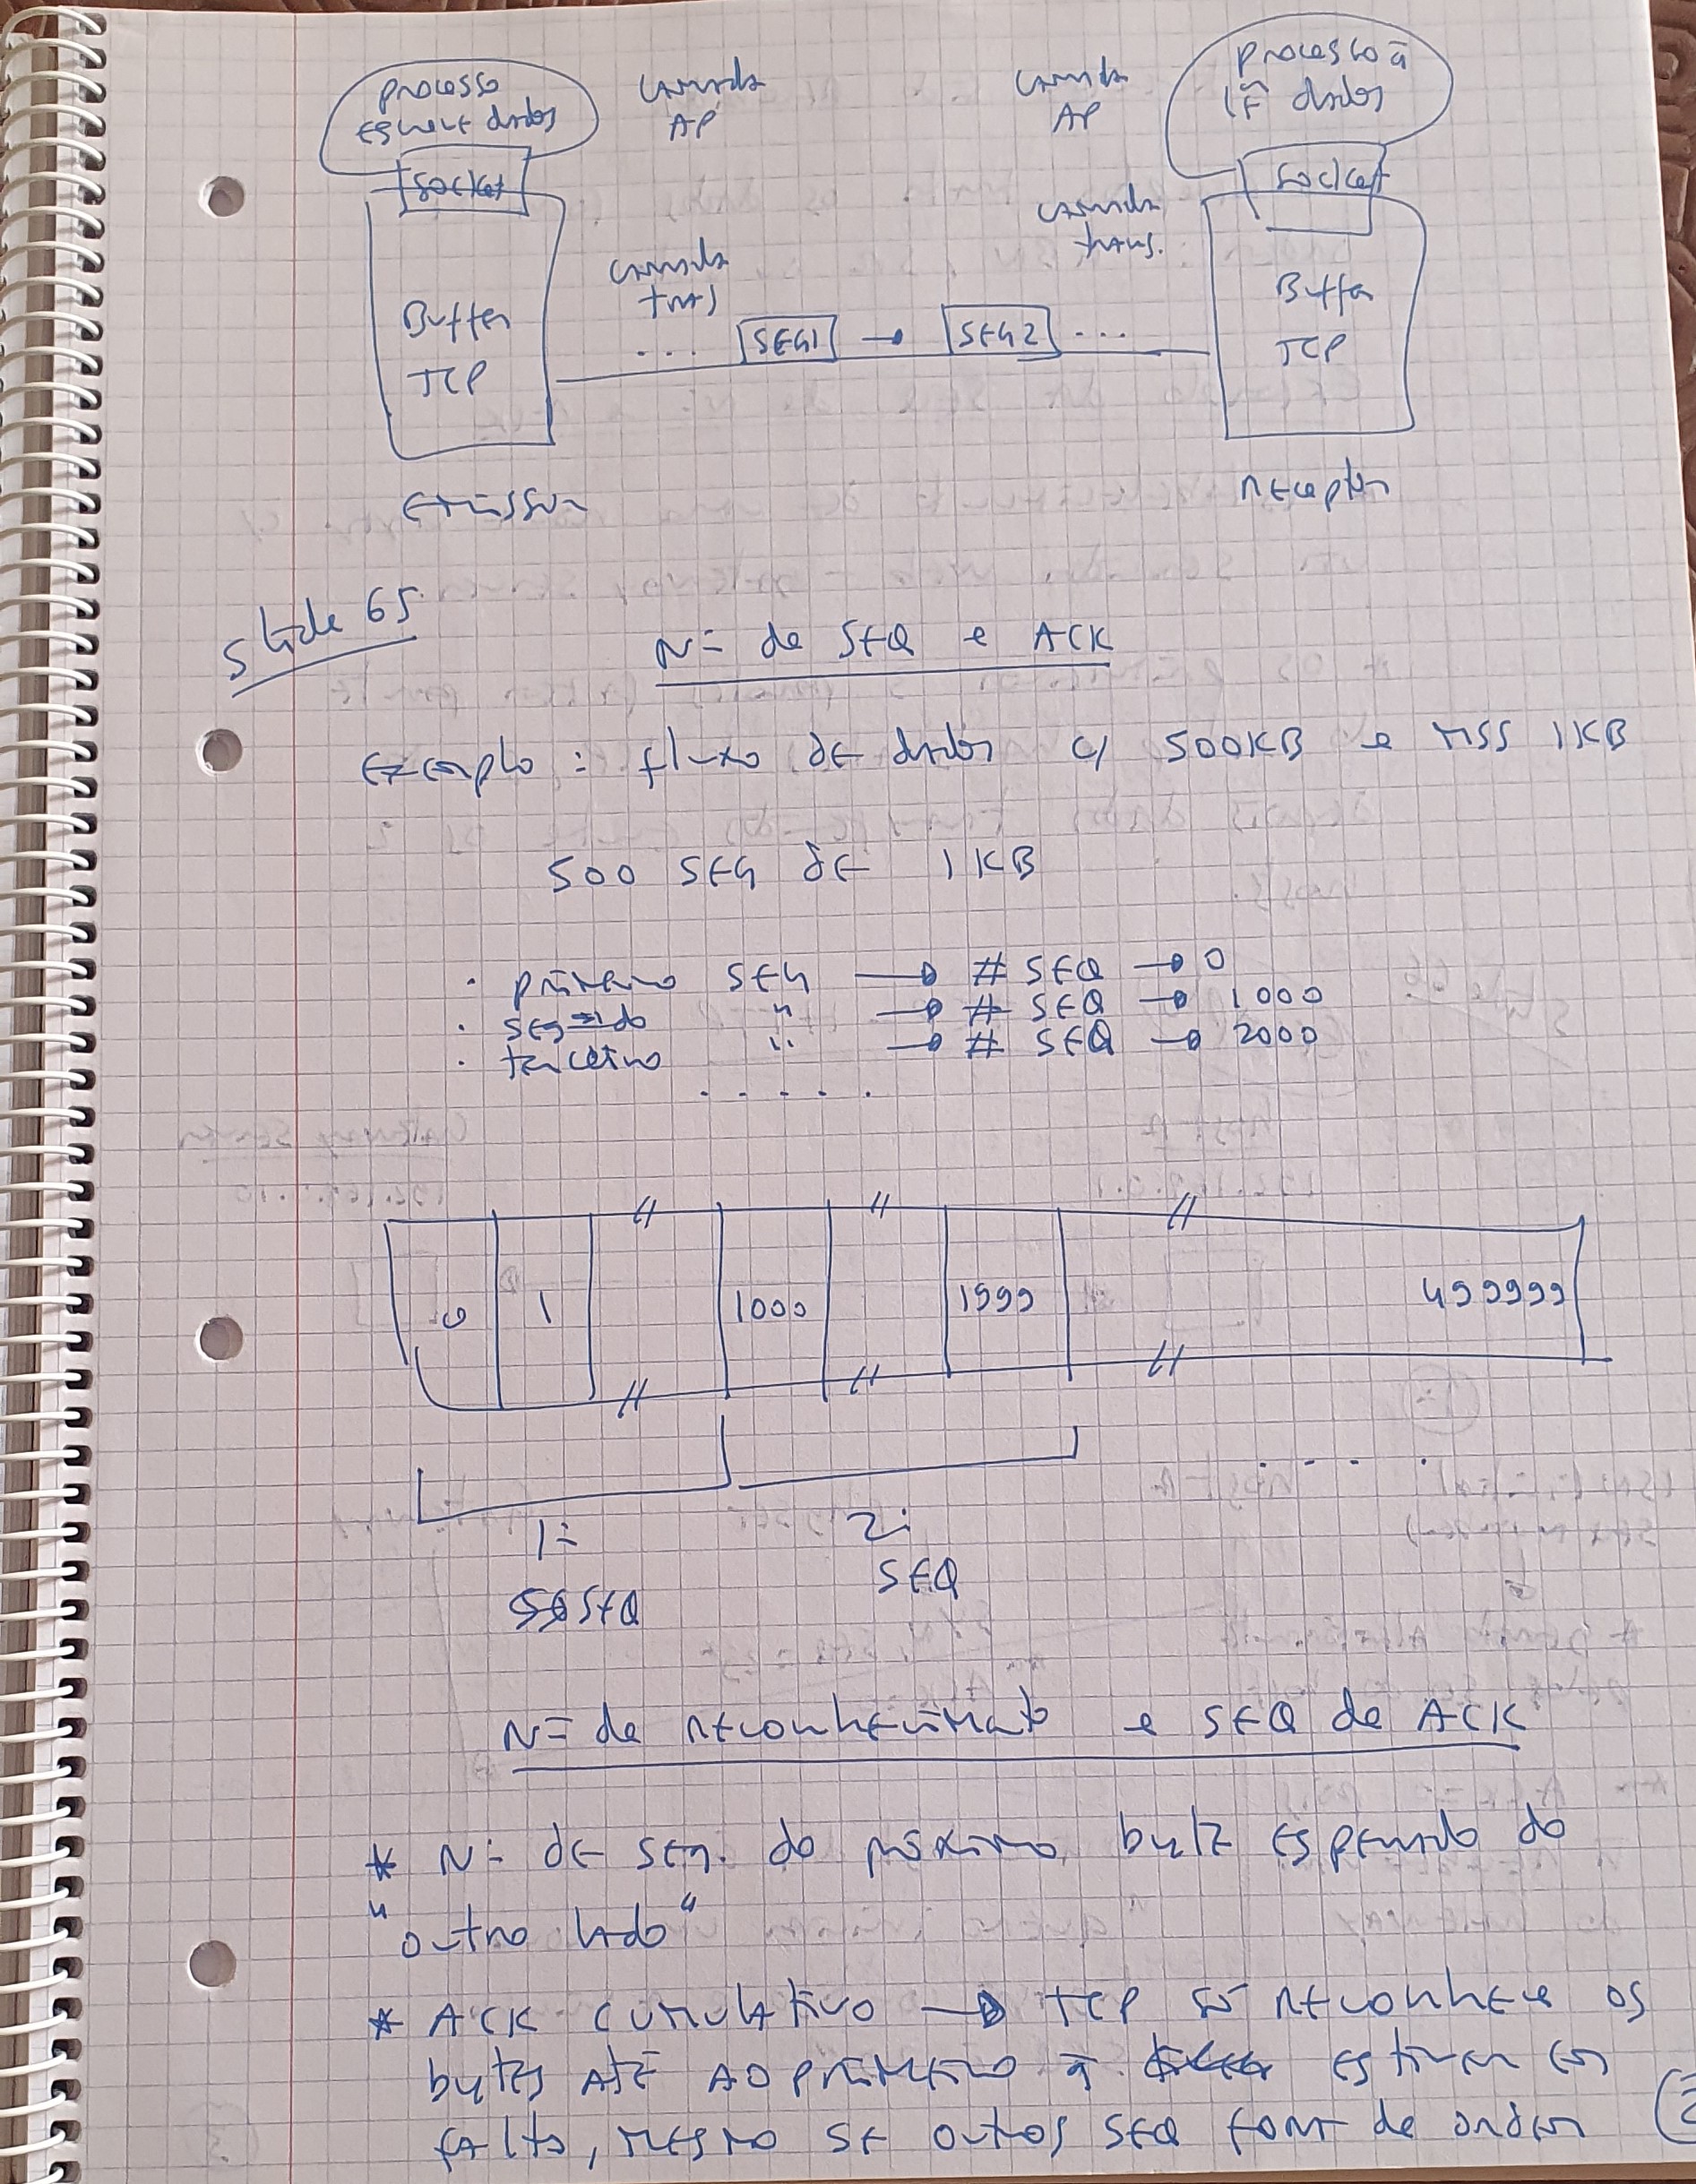 processo
escreve dados
camada
AP
camada
AP
processo q̄
lê dados
socket
socket
camada
tras
camada
trans.
Buffer
TCP
... SEG1 → SEG2 ...
Buffer
TCP
Emissor
receptor
Slide 65
Nº de SEQ e ACK
Exemplo : fluxo de dados c/ 500KB e MSS 1KB
500 SEG de 1KB
· primeiro SEG → # SEQ → 0
· segundo " → # SEQ → 1000
· terceiro " → # SEQ → 2000
. . . . .
0 1 // 1000 // 1999 // 499999
1º
SEQ
2º
SEQ
Nº de reconhecimento e SEQ de ACK
* Nº de seq. do próximo byte esperado do
"outro lado"
* ACK cumulativo → TCP só reconhece os
bytes até ao primeiro q̄ estiver em
falta, mesmo se outros SEQ fora de ordem